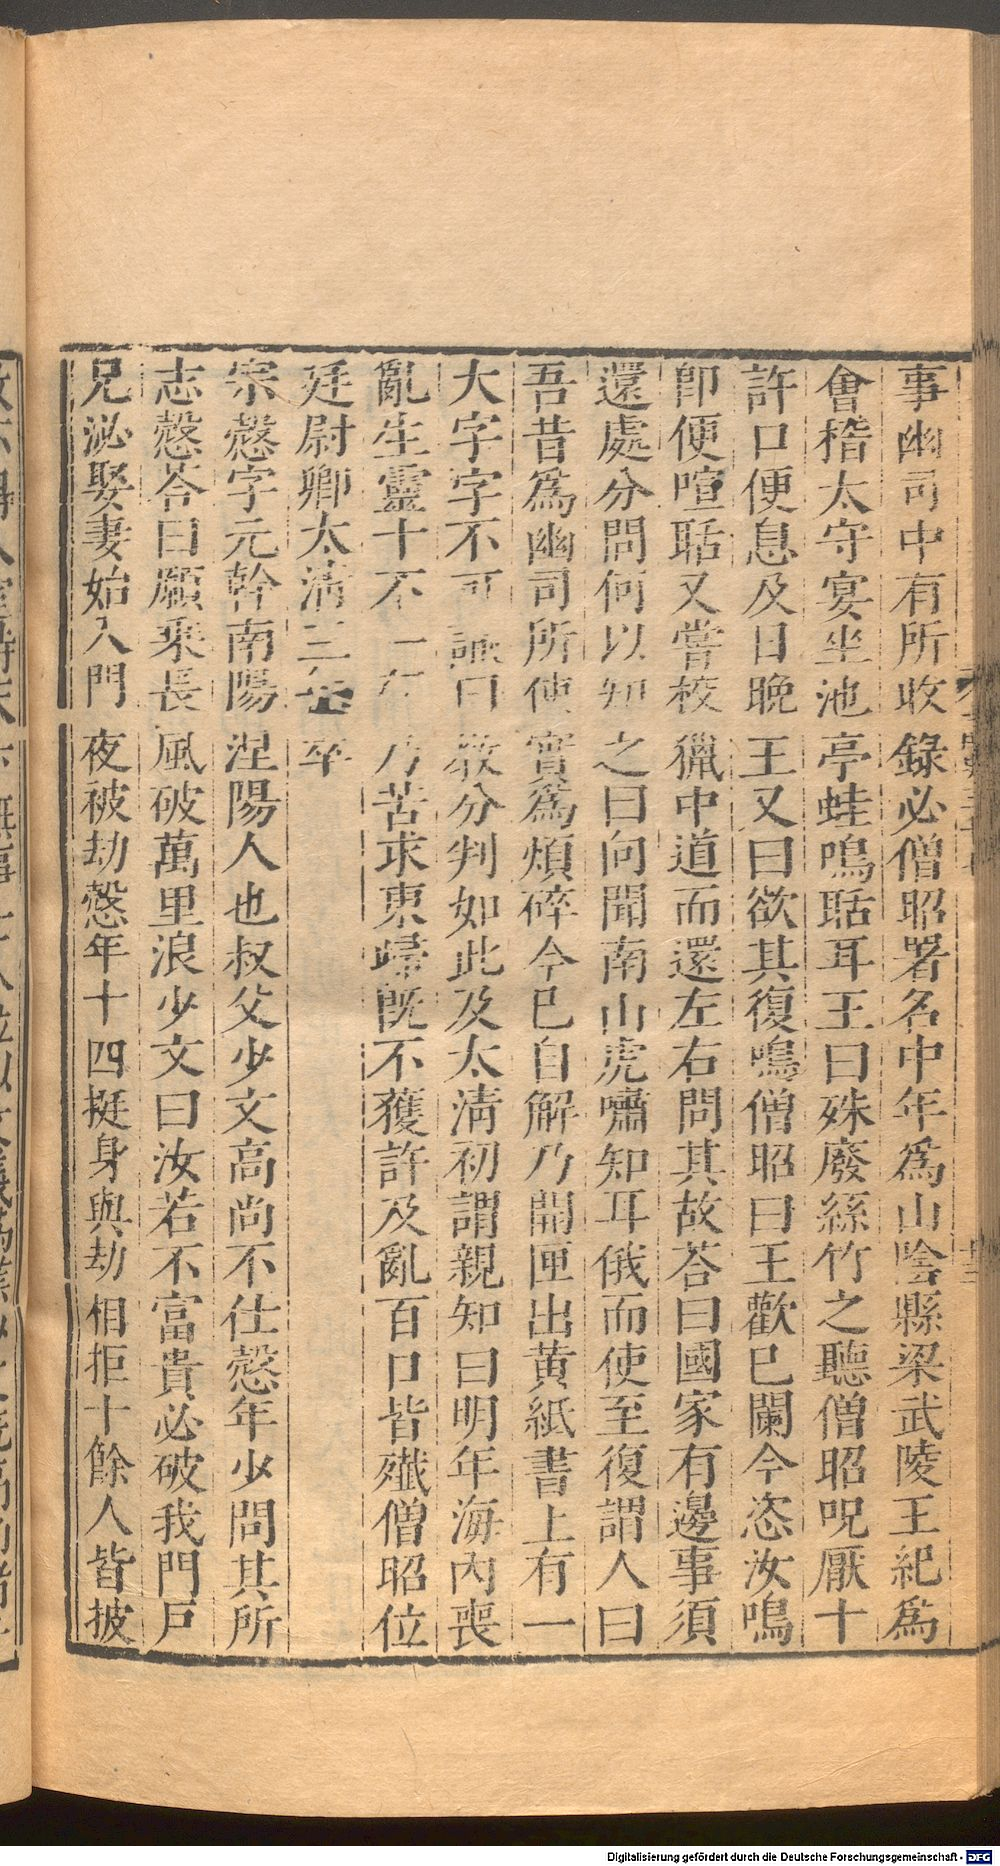 事幽司中有所收錄必僧昭署名中年為山陰縣梁武陵王紀為
會稽太守宴坐池亭蛙鳴聒耳王曰殊廢絲竹之聽僧昭呪厭十
許口便息及日晚王又曰欲其復鳴僧昭曰王歡已闌今恣汝鳴
即便喧聒又嘗校獵中道而還左右問其故荅曰國家有邊事須
還處分問何以知之曰向聞南山虎嘯知耳俄而使至復謂人曰
吾昔為幽司所使實為煩碎今已自解乃開匣出黃紙書上有一
大字字不可識曰教分判如此及太清初謂親知曰明年海內喪
亂生靈十不一存乃苦求東歸既不獲許及亂百口皆殲僧昭位
廷尉卿太清三年卒
宗愨字元幹南陽涅陽人也叔父少文高尚不仕愨年少問其所
志愨荅曰願乘長風破萬里浪少文曰汝若不富貴必破我門戶
兄泌娶妻始入門夜被劫愨年十四挺身與劫相拒十餘人皆披
Digitalisierung gefördert durch die Deutsche Forschungsgemeinschaft - DFG